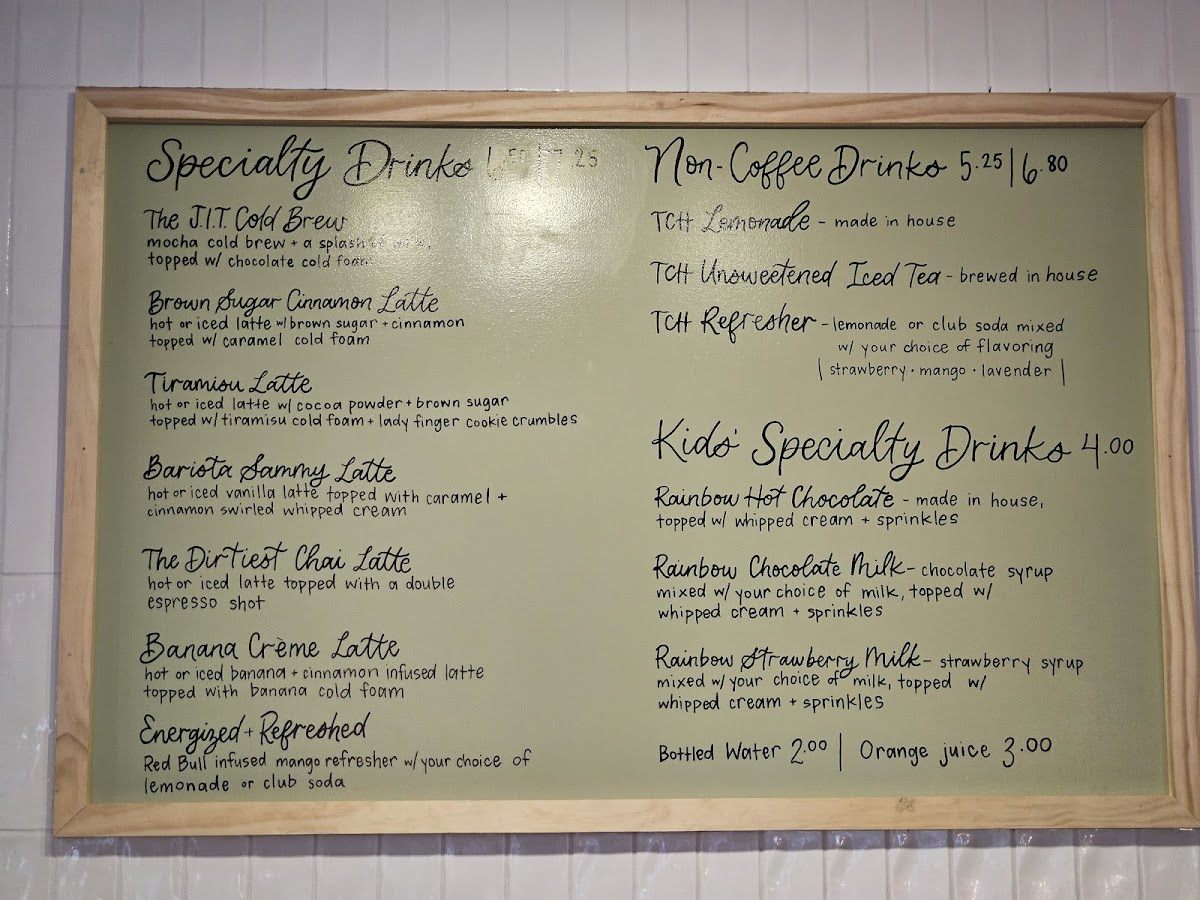 Specialty Drinks 6.50 | 7.25
The J.I.T. Cold Brew
mocha cold brew + a splash of milk,
topped w/ chocolate cold foam
Brown Sugar Cinnamon Latte
hot or iced latte w/ brown sugar + cinnamon
topped w/ caramel cold foam
Tiramisu Latte
hot or iced latte w/ cocoa powder + brown sugar
topped w/ tiramisu cold foam + lady finger cookie crumbles
Barista Sammy Latte
hot or iced vanilla latte topped with caramel +
cinnamon swirled whipped cream
The Dirtiest Chai Latte
hot or iced latte topped with a double
espresso shot
Banana Crème Latte
hot or iced banana + cinnamon infused latte
topped with banana cold foam
Energized + Refreshed
Red Bull infused mango refresher w/ your choice of
lemonade or club soda
Non-Coffee Drinks 5.25 | 6.80
TCH Lemonade - made in house
TCH Unsweetened Iced Tea - brewed in house
TCH Refresher - lemonade or club soda mixed
w/ your choice of flavoring
| strawberry · mango · lavender |
Kids' Specialty Drinks 4.00
Rainbow Hot Chocolate - made in house,
topped w/ whipped cream + sprinkles
Rainbow Chocolate Milk - chocolate syrup
mixed w/ your choice of milk, topped w/
whipped cream + sprinkles
Rainbow Strawberry Milk - strawberry syrup
mixed w/ your choice of milk, topped w/
whipped cream + sprinkles
Bottled Water 2.00 | Orange juice 3.00